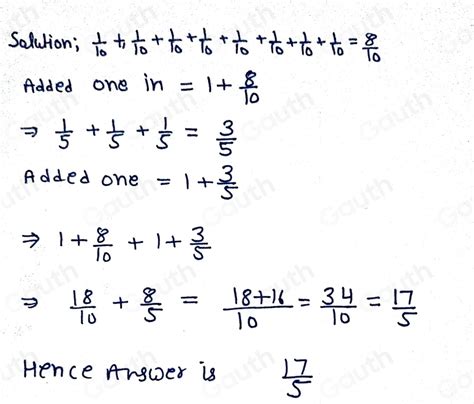 Solution; 1/10 + 1/10 + 1/10 + 1/10 + 1/10 + 1/10 + 1/10 + 1/10 = 8/10
Added one in = 1 + 8/10
⇒ 1/5 + 1/5 + 1/5 = 3/5
Added one = 1 + 3/5
⇒ 1 + 8/10 + 1 + 3/5
⇒ 18/10 + 8/5 = 18+16/10 = 34/10 = 17/5
Hence Answer is 17/5